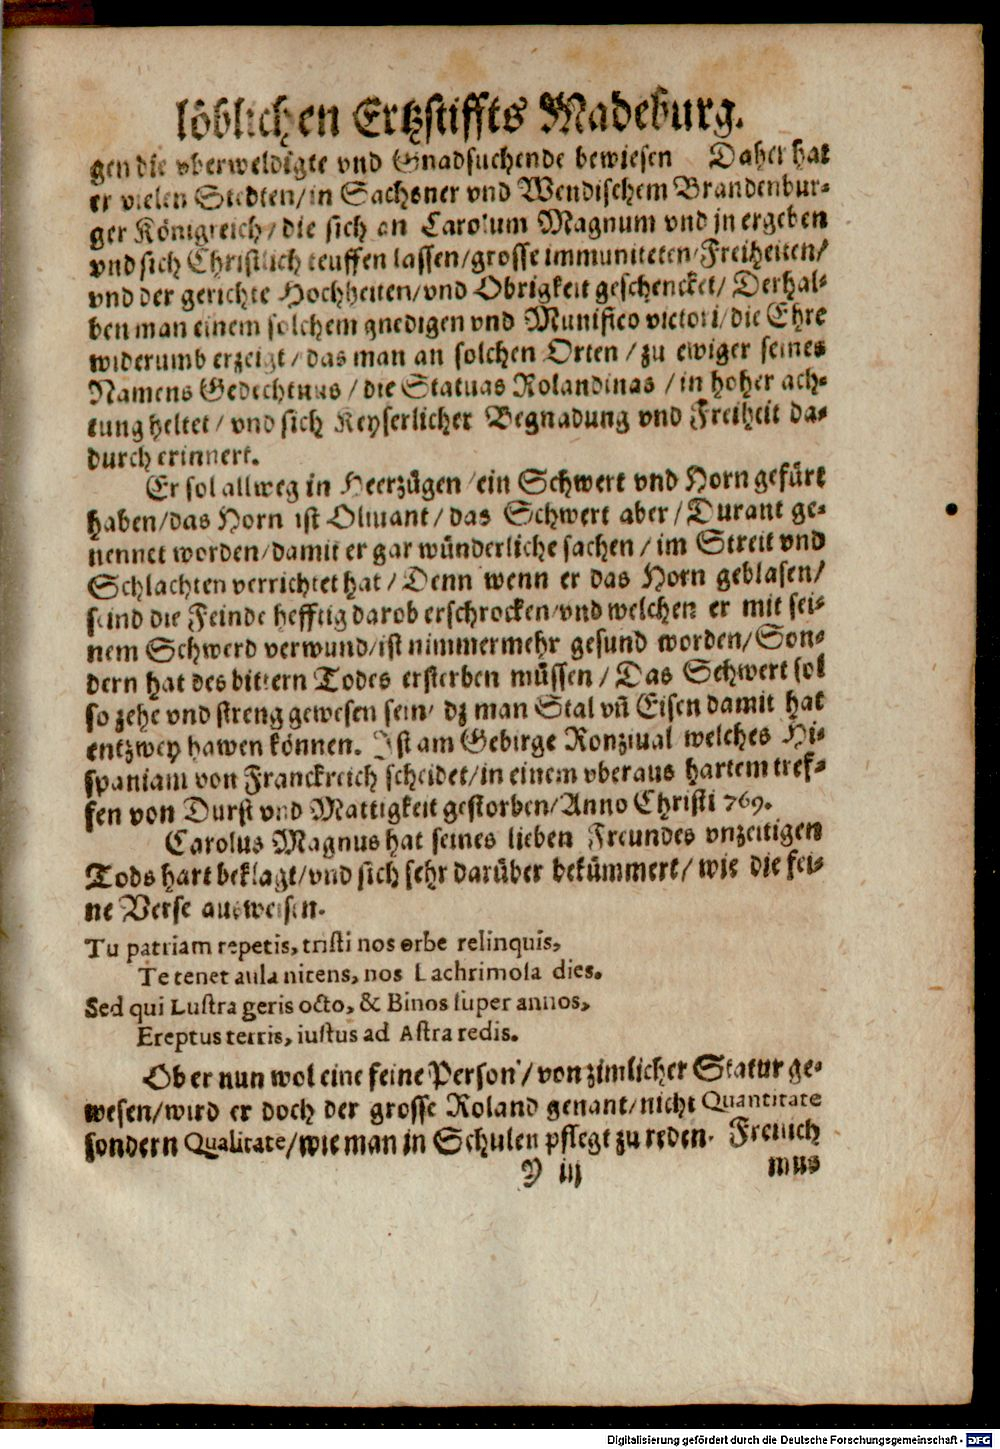 löblichen Ertzstiffts Madeburg.
gen die vberweldigte vnd Gnadsuchende bewiesen Daher hat
er vielen Stedten/in Sachsner vnd Wendischem Brandenbur-
ger Königreich/die sich an Carolum Magnum vnd jn ergeben
vnd sich Christlich teuffen lassen/grosse immuniteten/Freiheiten/
vnd der gerichte Hochheiten/vnd Obrigkeit geschencket/Derhal-
ben man einem solchem gnedigen vnd Munifico victori/die Ehre
widerumb erzeigt/das man an solchen Orten/zu ewiger seines
Namens Gedechtnus/die Statuas Rolandinas/in hoher ach-
tung heltet/vnd sich Keyserlicher Begnadung vnd Freiheit da-
durch erinnert.
Er sol allweg in Heerzügen/ein Schwert vnd Horn gefürt
haben/das Horn ist Oliuant/das Schwert aber/Durant ge-
nennet worden/damit er gar wünderliche sachen/im Streit vnd
Schlachten verrichtet hat/Denn wenn er das Horn geblasen/
seind die Feinde hefftig darob erschrocken/vnd welchen er mit sei-
nem Schwerd verwund/ist nimmermehr gesund worden/Son-
dern hat des bittern Todes ersterben müssen/Das Schwert sol
so zehe vnd streng gewesen sein/dz man Stal vñ Eisen damit hat
entzwey hawen können. Ist am Gebirge Ronziual welches Hi-
spaniam von Franckreich scheidet/in einem vberaus hartem tref-
fen von Durst vnd Mattigkeit gestorben/Anno Christi 769.
Carolus Magnus hat seines lieben Freundes vnzeitigen
Tods hart beklagt/vnd sich sehr darüber bekümmert/wie die fei-
ne Verse ausweisen.
Tu patriam repetis, tristi nos orbe relinquis,
Te tenet aula nitens, nos Lachrimosa dies.
Sed qui Lustra geris octo, & Binos super annos,
Ereptus terris, iustus ad Astra redis.
Ob er nun wol eine feine Person/von zimlicher Statur ge-
wesen/wird er doch der grosse Roland genant/nicht Quantitate
sondern Qualitate/wie man in Schulen pflegt zu reden. Freilich
Y iij mus
Digitalisierung gefördert durch die Deutsche Forschungsgemeinschaft - DFG